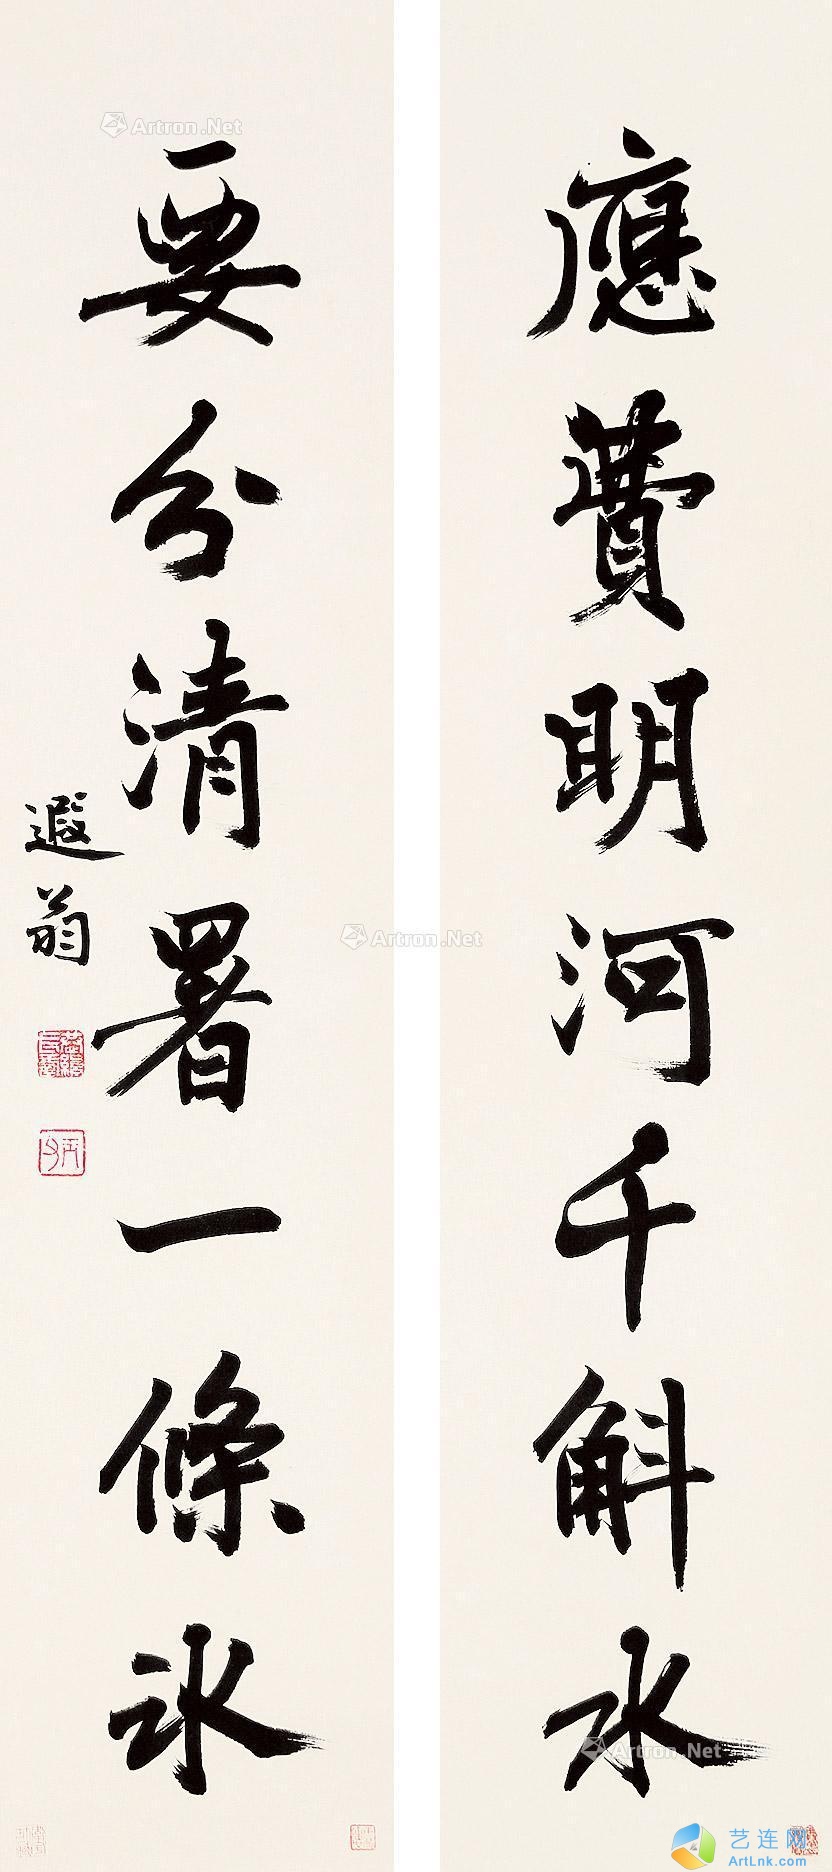 應費明河千斛水
要分清署一條冰
遐翁
Artron.Net
Artron.Net
Artron.Net
艺连网
ArtLnk.com